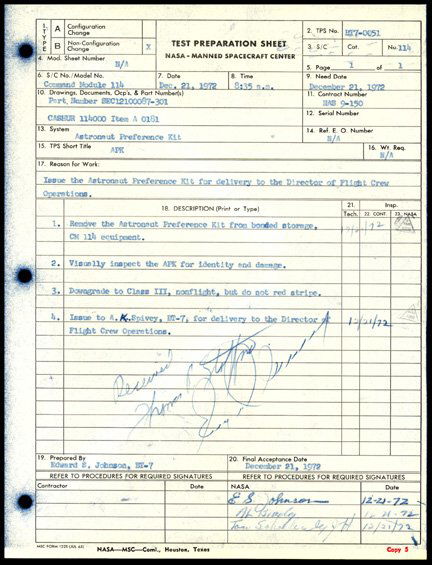 1. TYPE
A Configuration Change
B Non-Configuration Change X
TEST PREPARATION SHEET
NASA - MANNED SPACECRAFT CENTER
2. TPS No. BT7-0051
3. S/C Cat. No. 114
4. Mod. Sheet Number
N/A
5. Page 1 of 1
6. S/C No./Model No.
Command Module 114
7. Date
Dec. 21, 1972
8. Time
8:35 a.m.
9. Need Date
December 21, 1972
10. Drawings, Documents, Ocp's, & Part Number(s)
Part Number SEC12100087-301
CASHUR 114000 Item A 0181
11. Contract Number
NAS 9-150
12. N/A
13. System
Astronaut Preference Kit
14. Ref. E. O. Number
N/A
15. TPS Short Title
APK
16. Wt. Req.
N/A
17. Reason for Work:
Issue the Astronaut Preference Kit for delivery to the Director of Flight Crew
Operations.
18. DESCRIPTION (Print or Type)
21. Insp.
Tech. 22. CONT. 23. NASA
1. Remove the Astronaut Preference Kit from bonded storage.
CM 114 equipment.
12/21/72
2. Visually inspect the APK for identity and damage.
3. Downgrade to Class III, nonflight, but do not red stripe.
4. Issue to A. K. Spivey, BT-7, for delivery to the Director of
Flight Crew Operations.
12/21/72
Received
Thomas P. Stafford
19. Prepared By
Edward S. Johnson, BT-7
20. Final Acceptance Date
December 21, 1972
REFER TO PROCEDURES FOR REQUIRED SIGNATURES
REFER TO PROCEDURES FOR REQUIRED SIGNATURES
Contractor
NASA
E S Johnson 12-21-72
12-21-72
12/21/72
MSC FORM 1225 (JUL 65)
NASA—MSC—Coml., Houston, Texas
Copy 5